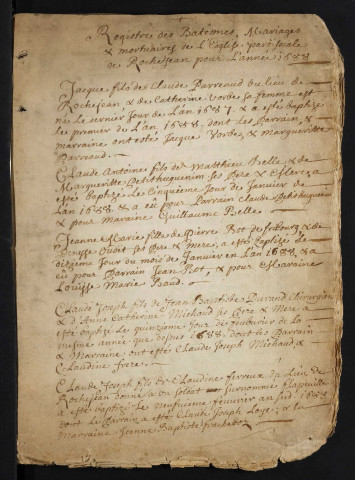 Registre des Batêmes, Mariages
& mortuaires de L'Eglise paroissiale
de Rochejean pour L'année 1688
Jacque fils de Claude Barreaud du lieu de
Rochejean, & de Catherine Vorbe sa femme est
né le dernier jour de L'an 1687 & a esté baptizé
le premier de L'an 1688, dont les Parrain, &
marraine ont estés Jacque Vorbe, & Margueritte
Barreaud.
Claude Antoine fils de Matthieu Belle & de
Marguerite ses Pere & Mere, a
esté Baptizé Le Cinquième Jour de Janvier de
L'an 1688 & a eü pour Parrain Claude
& pour Maraine Guillaume Belle.
Jeanne Marie fille de Pierre Rot de fribourg & de
ses Pere & Mere, a esté Baptizée Le
dizième Jour du mois de Janvier en L'an 1688 & a
eü pour Parrain Jean Rot, & pour Maraine
Louïse Marie
Claude Joseph fils de Jean Baptiste Durand Chirurgien
& d'Anne Catherine Michaud ses Pere & Mere a
esté baptizé Le quinzième Jour de de la
mesme année que dessus 1688 dont les Parrain
& Marraine ont estés Claude Joseph Michaud &
Claudine frere.
Claude Joseph fils de Claudine ferreux du Lieu de
Rochejean donné a un soldat surnommé
a esté baptizé Le neufvieme fevrier an susd. 1688
dont Le Parrain a esté Claude Joseph Loye, & la
Marraine Jeanne Baptiste